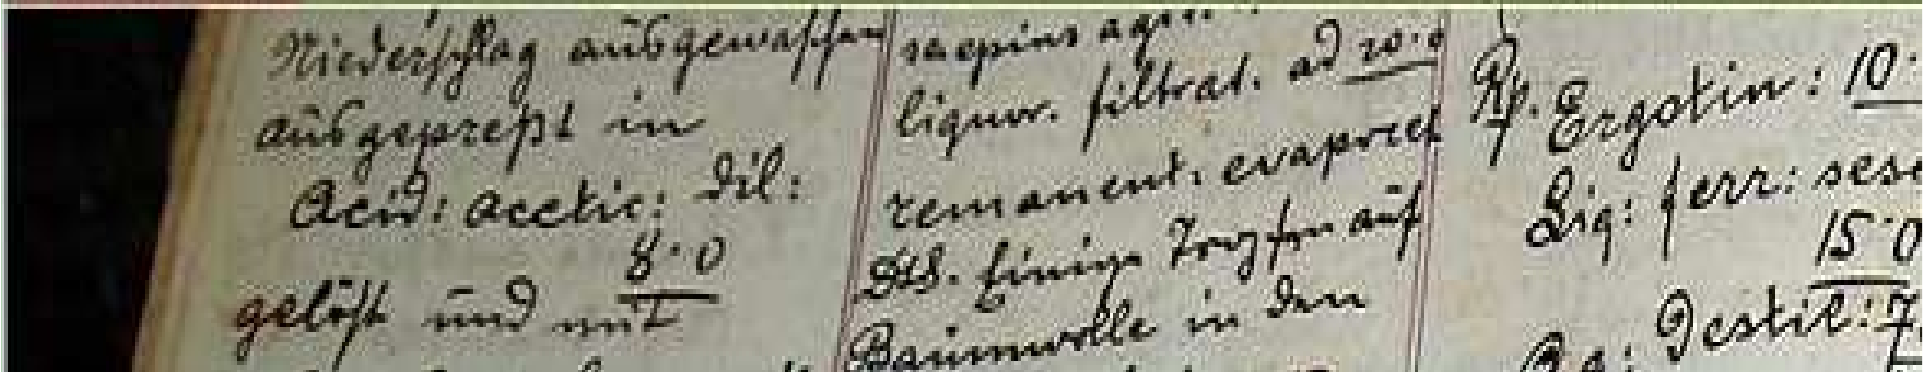 Niederschlag ausgewaschen
ausgepreßt in
Acid: acetic: dil:
8·0
gelöst und mit
saepius
liquor. filtrat. ad 20·0
remanent. evaporet
DtS. Einige Tropfen auf
Baumwolle in den
Rp. Ergotin: 10·
Liq: ferr: sesq
15·0
Aq: Destil: 7